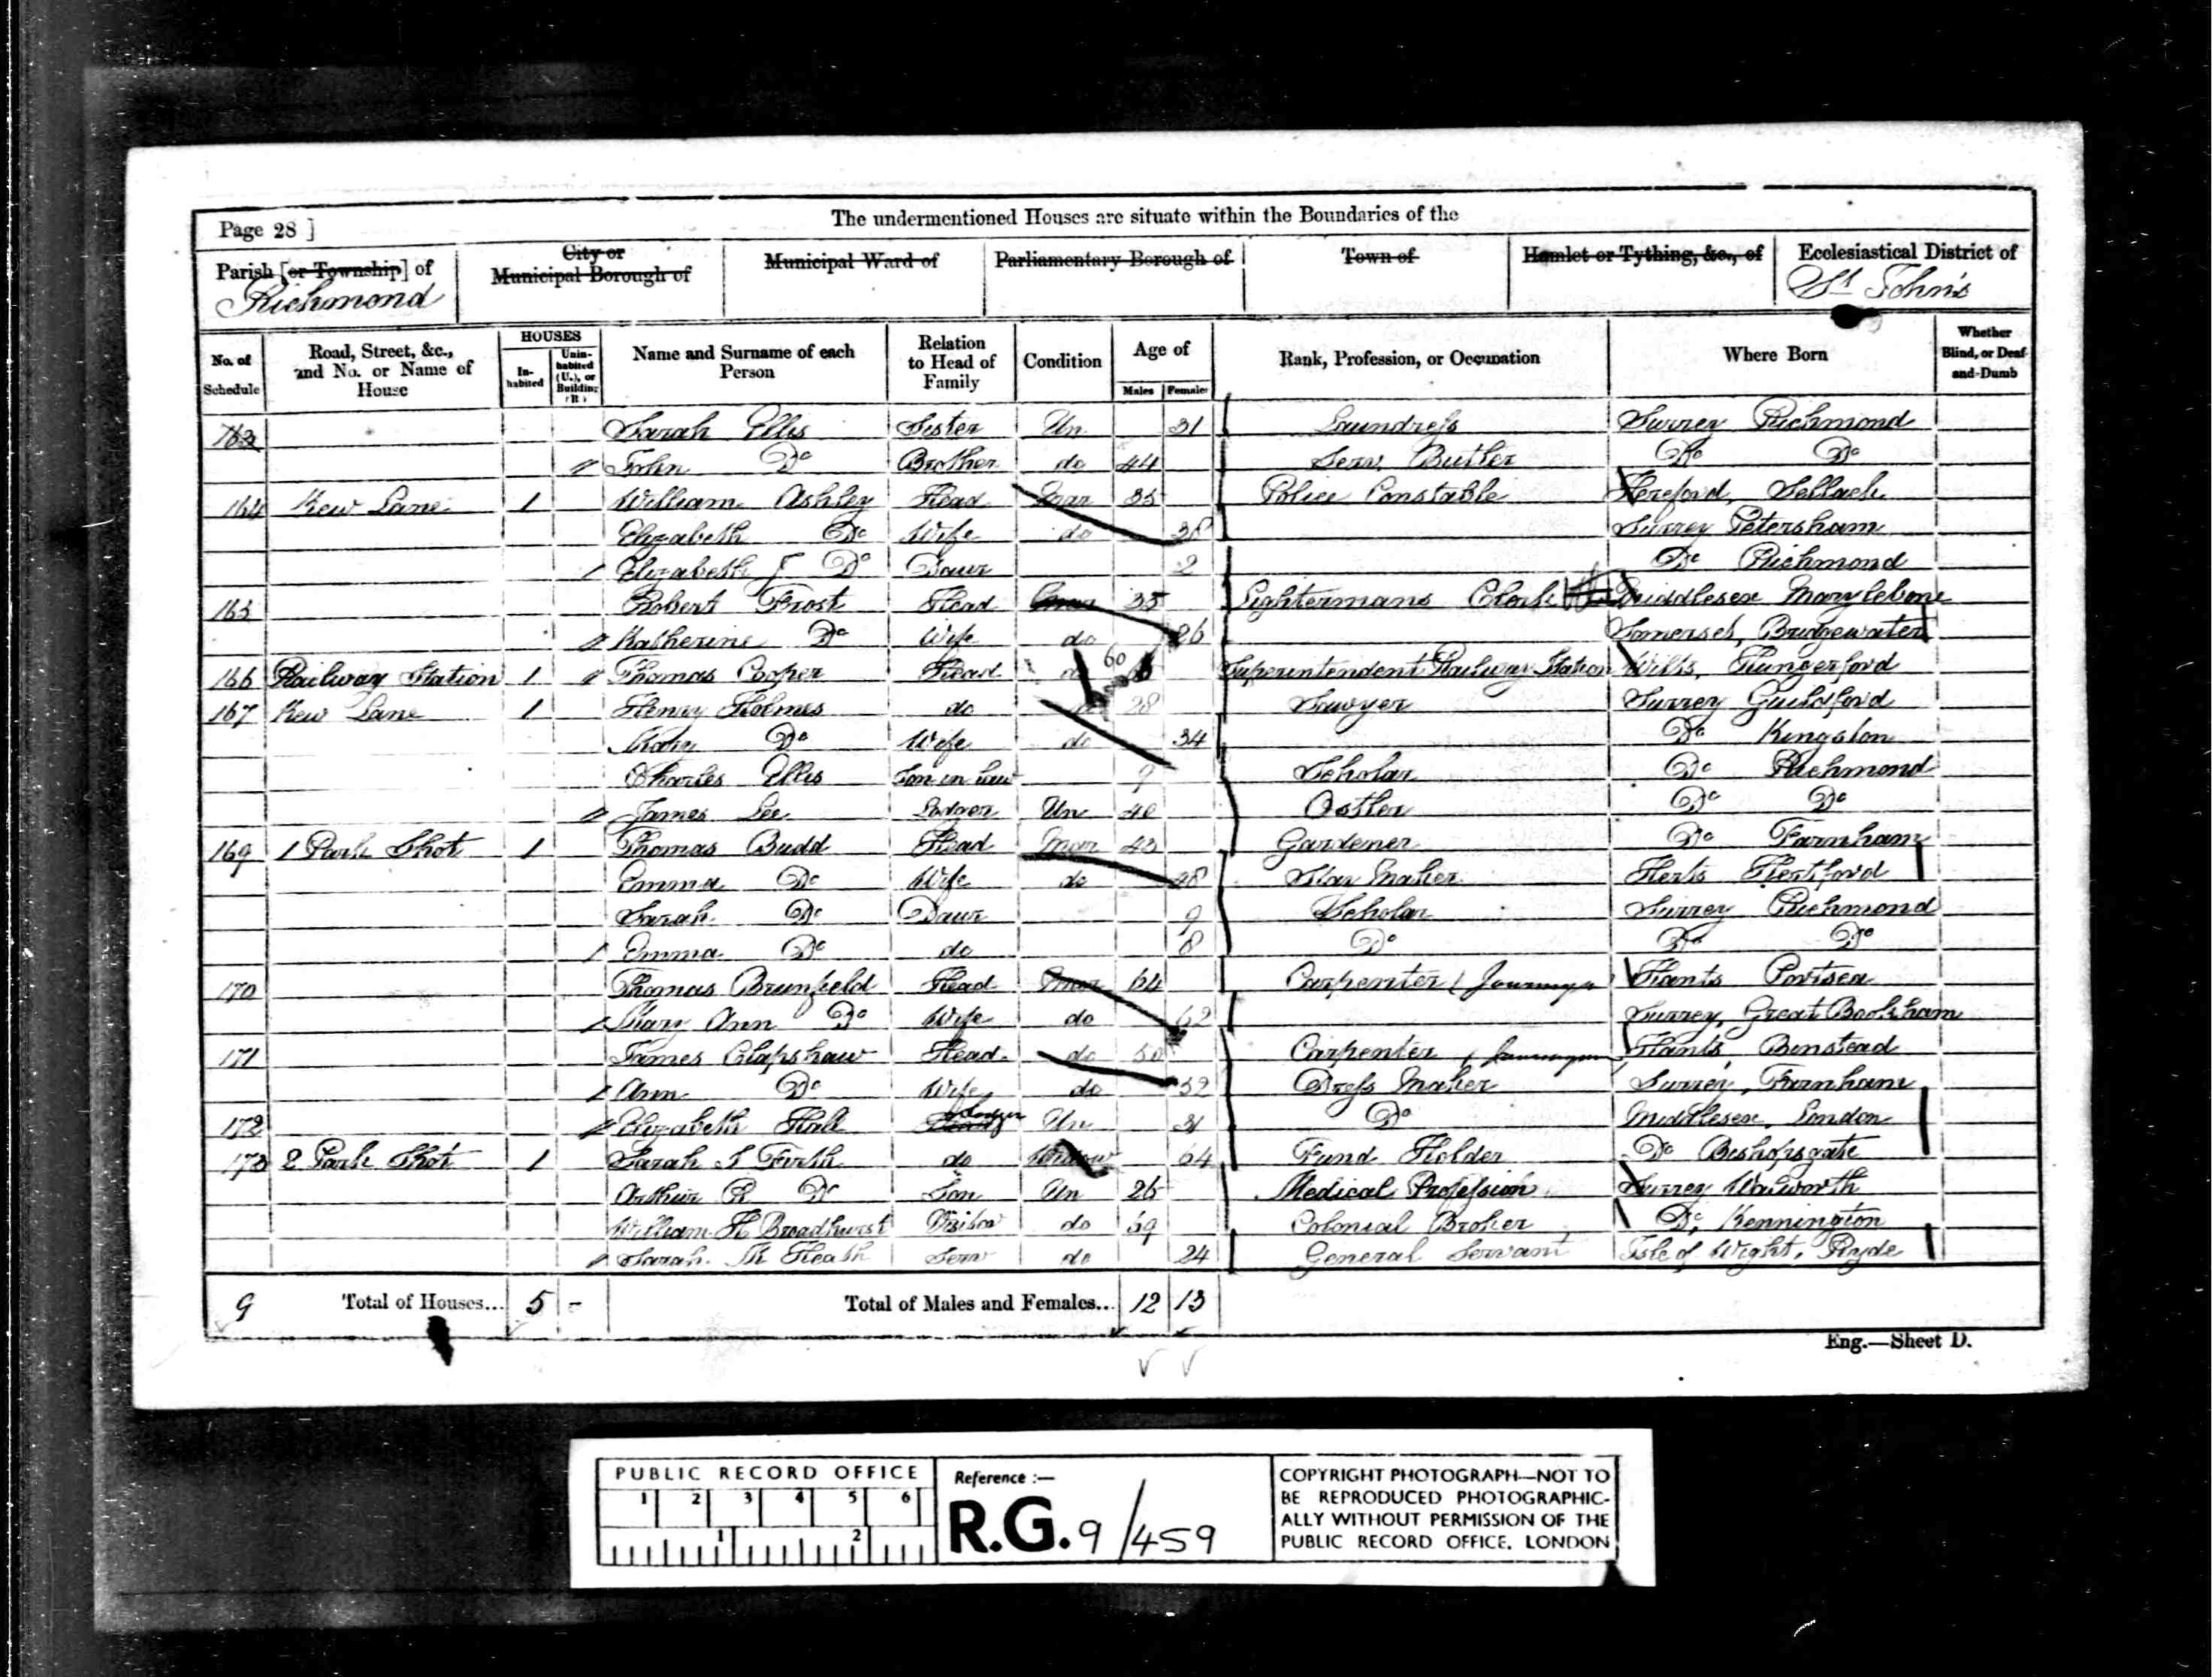 Page 28 ]
The undermentioned Houses are situate within the Boundaries of the
Parish [or Township] of Richmond
City or Municipal Borough of
Municipal Ward of
Parliamentary Borough of
Town of
Hamlet or Tything, &c., of
Ecclesiastical District of St John's
No. of Schedule
Road, Street, &c., and No. or Name of House
HOUSES
In-habited
Unin-habited (U.), or Building (B.)
Name and Surname of each Person
Relation to Head of Family
Condition
Age of
Males
Females
Rank, Profession, or Occupation
Where Born
Whether Blind, or Deaf-and-Dumb
163 Sarah Ellis Sister Un 31 Laundress Surrey Richmond
John Do Brother do 44 Serv. Butler Do Do
164 Kew Lane 1 William Ashley Head Mar 35 Police Constable Hereford, Sellack
Elizabeth Do Wife do 38 Surrey Petersham
Elizabeth J Do Daur 2 Do Richmond
165 Robert Frost Head Mar 35 Lightermans Clerk Middlesex Marylebone
Katherine Do Wife do 26 Somerset, Bridgewater
166 Railway Station 1 Thomas Cooper Head do 60 Superintendent Railway Station Wilts, Hungerford
167 Kew Lane 1 Henry Holmes do 38 Sawyer Surrey Guildford
Mary Do Wife do 34 Do Kingston
Charles Ellis Son in Law 9 Scholar Do Richmond
James Lee Lodger Un 40 Ostler Do Do
169 1 Park Shot 1 Thomas Budd Head Mar 43 Gardener Do Farnham
Emma Do Wife do 38 Maker Herts Hertford
Sarah Do Daur 9 Scholar Surrey Richmond
Emma Do do 8 Do Do Do
170 Thomas Brunfield Head Mar 64 Carpenter Hants Portsea
Mary Ann Do Wife do 62 Surrey, Great Bookham
171 James Clapshaw Head do 50 Carpenter Hants, Binstead
Ann Do Wife do 52 Dress Maker Surrey, Farnham
172 Elizabeth Hall Lodger Un 31 Do Middlesex, London
173 2 Park Shot 1 Sarah J Firth do Widow 64 Fund Holder Do Bishopsgate
Arthur R Do Son Un 26 Medical Profession Surrey Walworth
William H Broadhurst Visitor do 59 Colonial Broker Do, Kennington
Sarah M Heath Serv do 24 General Servant Isle of Wight, Ryde
9 Total of Houses... 5 - Total of Males and Females... 12 13
Eng.—Sheet D.
PUBLIC RECORD OFFICE
1 2 3 4 5 6
1 2
Reference :—
R.G. 9/459
COPYRIGHT PHOTOGRAPH—NOT TO
BE REPRODUCED PHOTOGRAPHIC-
ALLY WITHOUT PERMISSION OF THE
PUBLIC RECORD OFFICE, LONDON